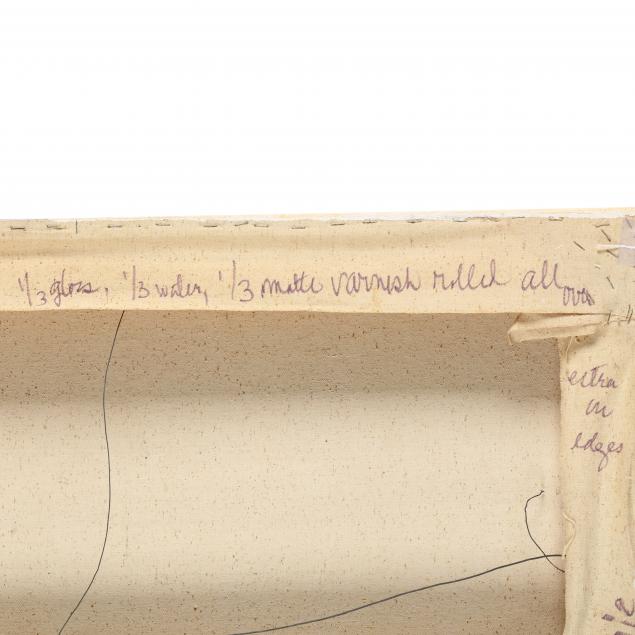 1/3 gloss, 1/3 water, 1/3 matte varnish rolled all over
extra
on
edges